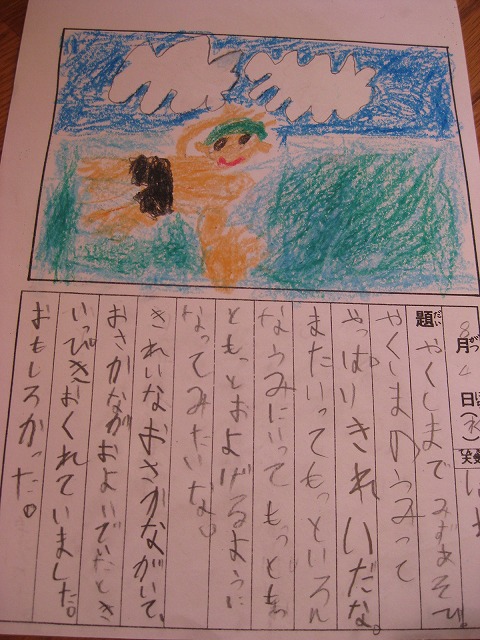 8月4日(水)
題 やくしまでみずあそび。
やくしまのうみって
やっぱりきれいだな。
またいってもっといろん
なうみにいってもっともっ
ともっとおよげるように
なってみたいな。
きれいなおさかながいて、
おさかながおよいでいたとき
いっぴきおくれていました。
おもしろかった。